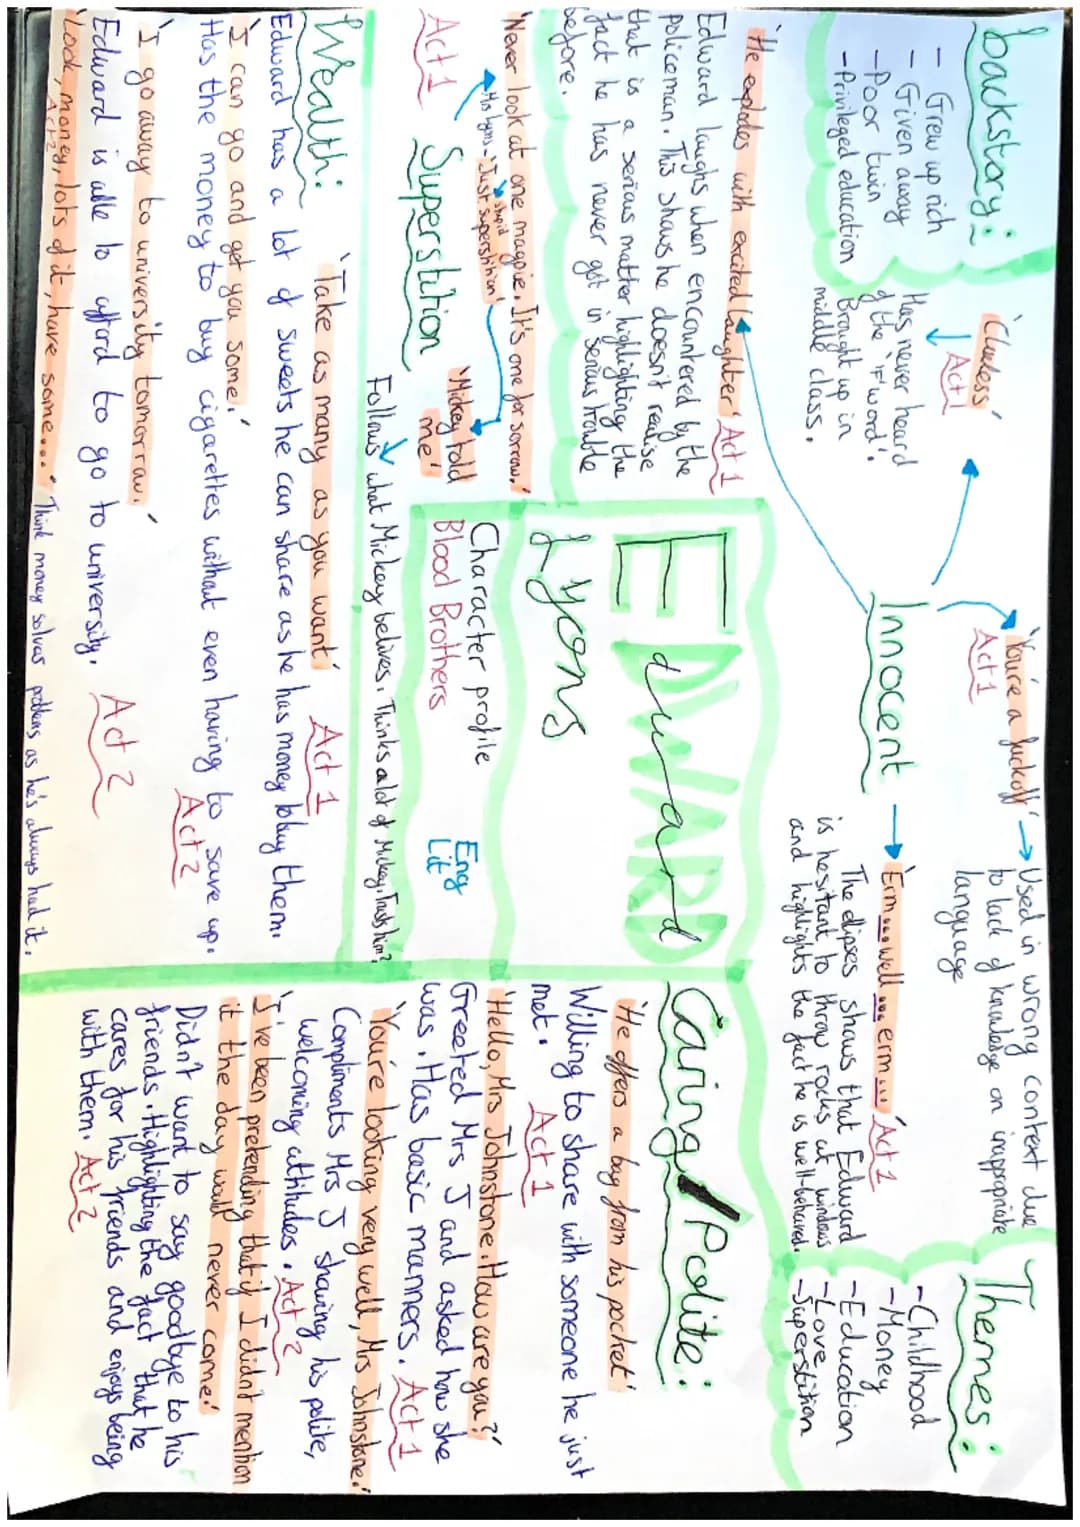 backstory:
- Grew up rich
- Given away
- Poor twin
- Privileged education
'Clueless'
Act 1
Has never heard
of the 'F' word.
Brought up in
middle class.
Innocent
'You're a fuckoff'
Act 1
Used in wrong context due
to lack of knowledge on inappropriate
language
'Erm...well...erm...' Act 1
The ellipses shows that Edward
is hesitant to throw rocks at windows
and highlights the fact he is well-behaved.
Themes:
- Childhood
- Money
- Education
- Love
- Superstition
'He explodes with excited laughter' Act 1
Edward laughs when encountered by the
policeman. This shows he doesn't realise
that is a serious matter highlighting the
fact he has never got in serious trouble
before.
EDWARD
Edward
Lyons
Character profile
Blood Brothers
Eng
Lit
'Never look at one magpie. It's one for sorrow.'
Mrs lyons
'Just superstition'
'Mickey told
me'
Act 1
Superstition
Follows what Mickey belives. Thinks a lot of Mickey. Trusts him?
Wealth:
'Take as many as you want' Act 1
Edward has a lot of sweets he can share as he has money to buy them.
'I can go and get you some.'
Has the money to buy cigarettes without even having to save up.
Act 2
'I go away to university tomorrow.'
Edward is able to afford to go to university. Act 2
'Look, money, lots of it, have some....' Think money solves problems as he's always had it.
Act 2
Caring/Polite:
'He offers a bag from his pocket'
Willing to share with someone he just
met. Act 1
'Hello, Mrs Johnstone. How are you?'
Greeted Mrs J and asked how she
was. Has basic manners. Act 1
'You're looking very well, Mrs Johnstone.'
Compliments Mrs J showing his polite,
welcoming attitudes. Act 2
'I've been pretending that if I didn't mention
it the day would never come!'
Didn't want to say goodbye to his
friends. Highlighting the fact that he
cares for his friends and enjoys being
with them. Act 2